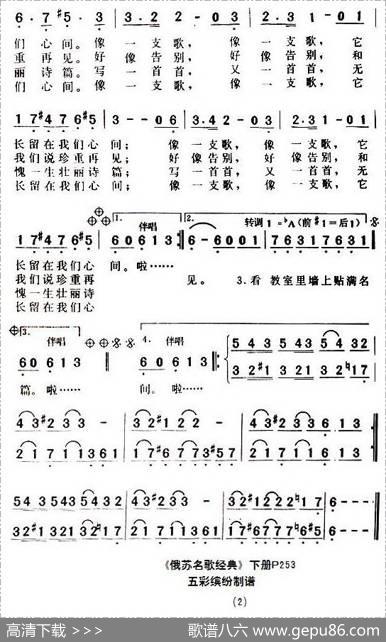 6· 7 #5· 3 | 3·2 2· -01 | 3·2 1· -01 |
们 心 间。 像 一 支 歌， 像 一 支 歌， 它
重 再 见。 好 像 告 别， 好 像 告 别， 和
丽 诗 篇。 写 一 首 首， 又 一 首 首， 无
们 心 间。 像 一 支 歌， 像 一 支 歌， 它
17 #4 76 #5 | 3--06 | 34·3-03 | 2·31-01 |
长 留 在 我 们 心 间； 像 一 支 歌， 像 一 支 歌， 它
我 们 说 珍 重 再 见； 好 像 告 别， 好 像 告 别， 和
愧 一 生 壮 丽 诗 篇； 写 一 首 首， 又 一 首 首， 无
长 留 在 我 们 心 间； 像 一 支 歌， 像 一 支 歌， 它
1. 伴唱 2. 转调 1=♭A(前#1=后1)
17 #4 76 #5 | 60613 :‖ 6-6001 | 7631 7631 |
长 留 在 我 们 心 间。 啦……
我 们 说 珍 重 再 见。 3.看 教室里墙上贴满名
愧 一 生 壮 丽 诗
长 留 在 我 们 心
3. 伴唱 4. 伴唱
60 613 60 613 543 543 5432
篇。啦…… 间。啦…… 321 321 32♮17
43#233 43#233 43#236 013
21711361 17#677#573 21711013
543 543 5432 43#233 32#1 22♮17 6--
32#1 321 32♮17 217113 17#6 77♮6#5 6--
《俄苏名歌经典》下册P253
五彩缤纷制谱
(2)
高清下载 >>>
歌谱八六 www.gepu86.com